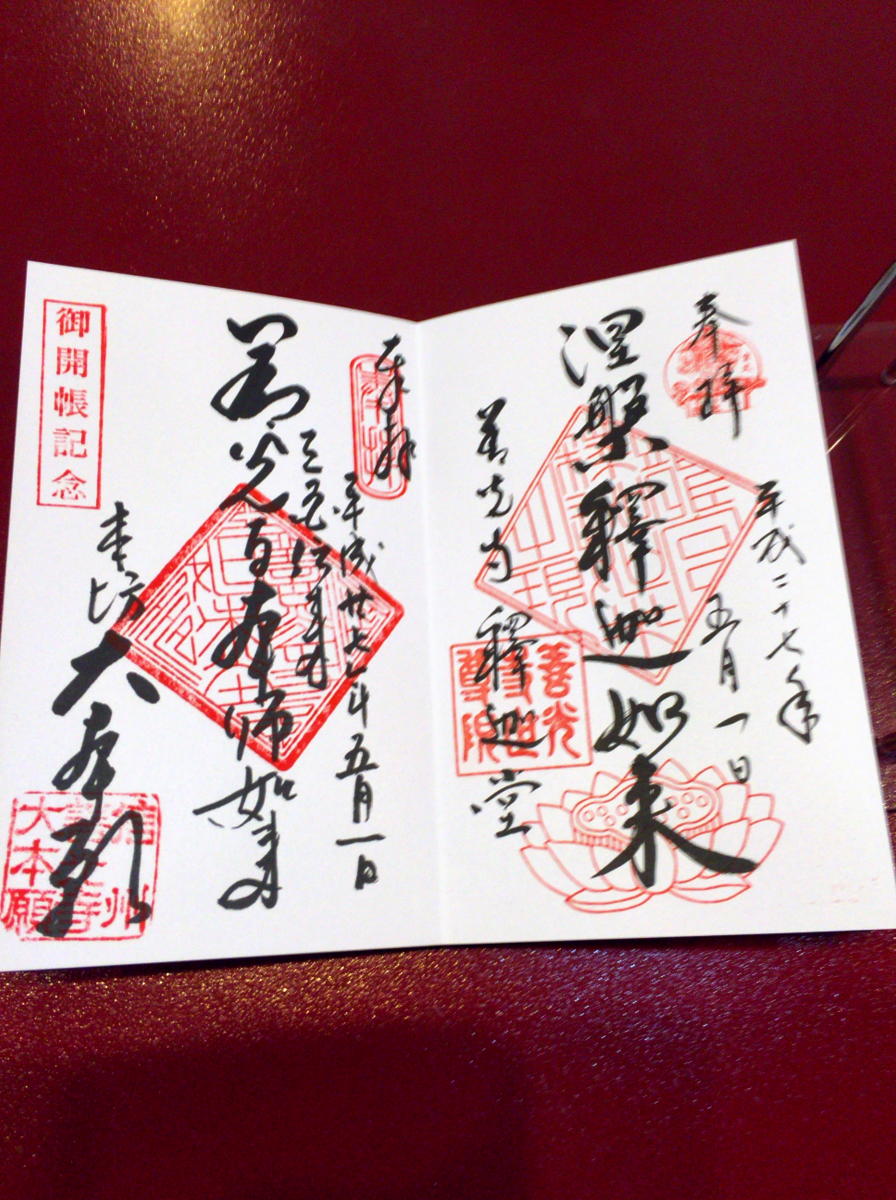 奉拝
平成二十七年
五月一日
涅槃釋迦如来
善光寺 釋迦堂
善光
寺世
尊院
奉拝
平成廿七年五月一日
三国伝来
善光寺本師如来
本坊 大本願
信州
善光寺
大本願
御開帳記念